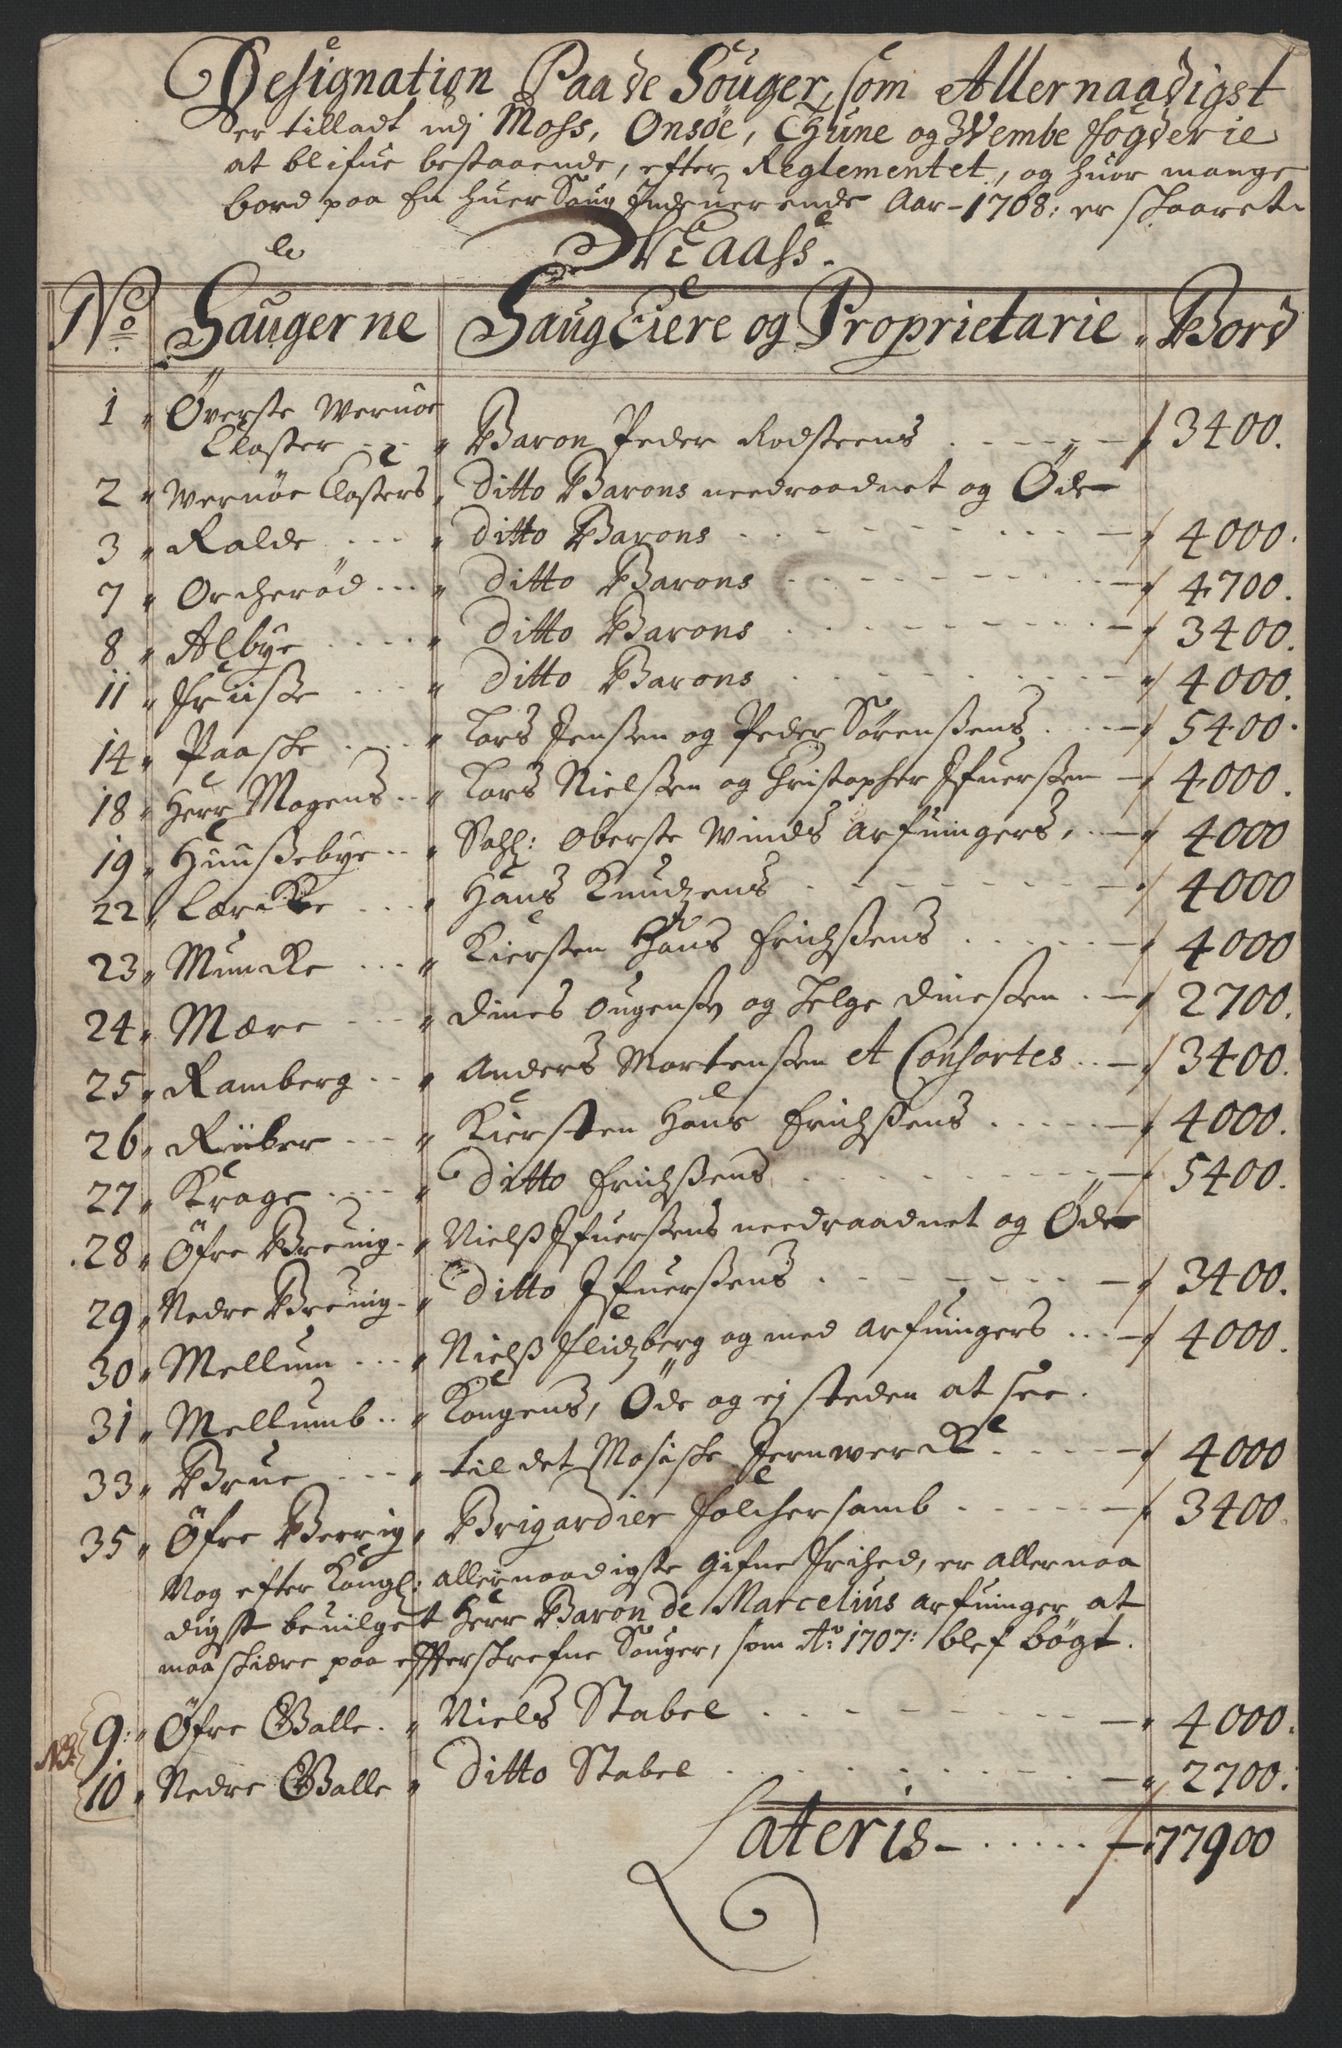 Designation Paa de Souger, som Allernaadigst
er tilladt udj Moss, Onsöe, Thune og Wembe fogderie
at blifue bestaaende, efter Reglementet, og huor mange
bord paa En huer Saug Indeuerende Aar 1708: er skaaret
Waass.
No Saugerne SaugEiere og Proprietarie. Bord
1 Överste Wernöe
Closter Baron Peder Rodsteens 3400.
2 Wernöe Closters Ditto Barons needraadnet og Öde
3 Ralde Ditto Barons 4000.
7 Orcheröd Ditto Barons 4700.
8 Albye Ditto Barons 3400.
11 Fruiske Ditto Barons 4000.
14 Paaske Lars Jensen og Peder Sörenssens 5400.
18 Herr Mogens Lars Nielssen og Christopher Ifuerssen 4000.
19 Huussebye Sahl: Oberste Winds Arfuingers 4000
22 Lærcke Hans Knudzens 4000
23 Muncke Kiersten Hans Erichssens 4000
24 Mære Dines Ougensen og Helge Dinessen 2700.
25 Ramberg Anders Mortenssen et Consortes 3400.
26 Riiber Kiersten Hans Erichssens 4000.
27 Krage Ditto Erichssens 5400.
28 Öfre Breuig Nielss Ifuerssens needraadnet og Öde
29 Nedre Breuig Ditto Ifuerssens 3400.
30 Mellum Nielss Flidzberg og med arfuingers 4000.
31 Mellumb Kongens, Öde og ej steden at see.
33 Brue til det Mosiske Jernwerck 4000
35 Öfre Berrig Brigardier Folchersamb 3400
Nog efter Kongl: allernaadigste Gifne Frihed, er allernaa
digst beuilget Herr Baron de Marcelius arfuinger at
maa skiære paa effterskrefne Souger, som Ao 1707: blef bögt.
NB. 9: Öfre Balle Niels Stabel 4000.
10 Nedre Balle Ditto Stabel 2700:
Lateris 77900